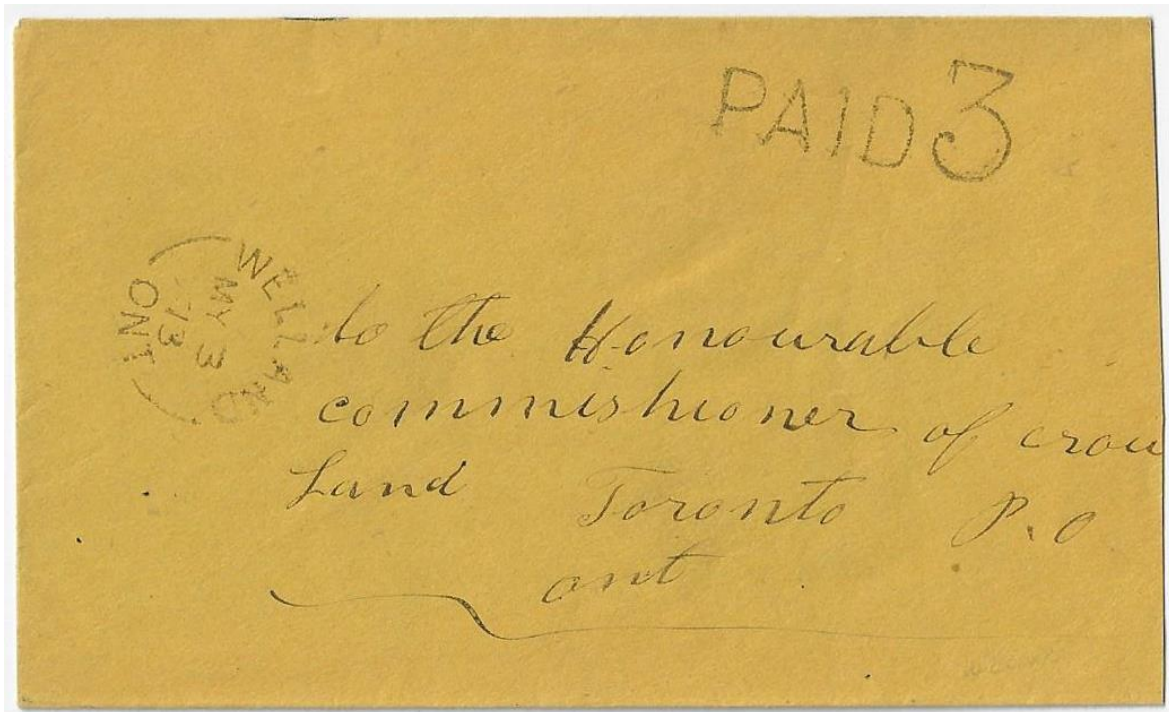 PAID 3
WELLAND
MY 3
73
ONT
to the Honourable
commishioner of crow
Land Toronto P.O
ont